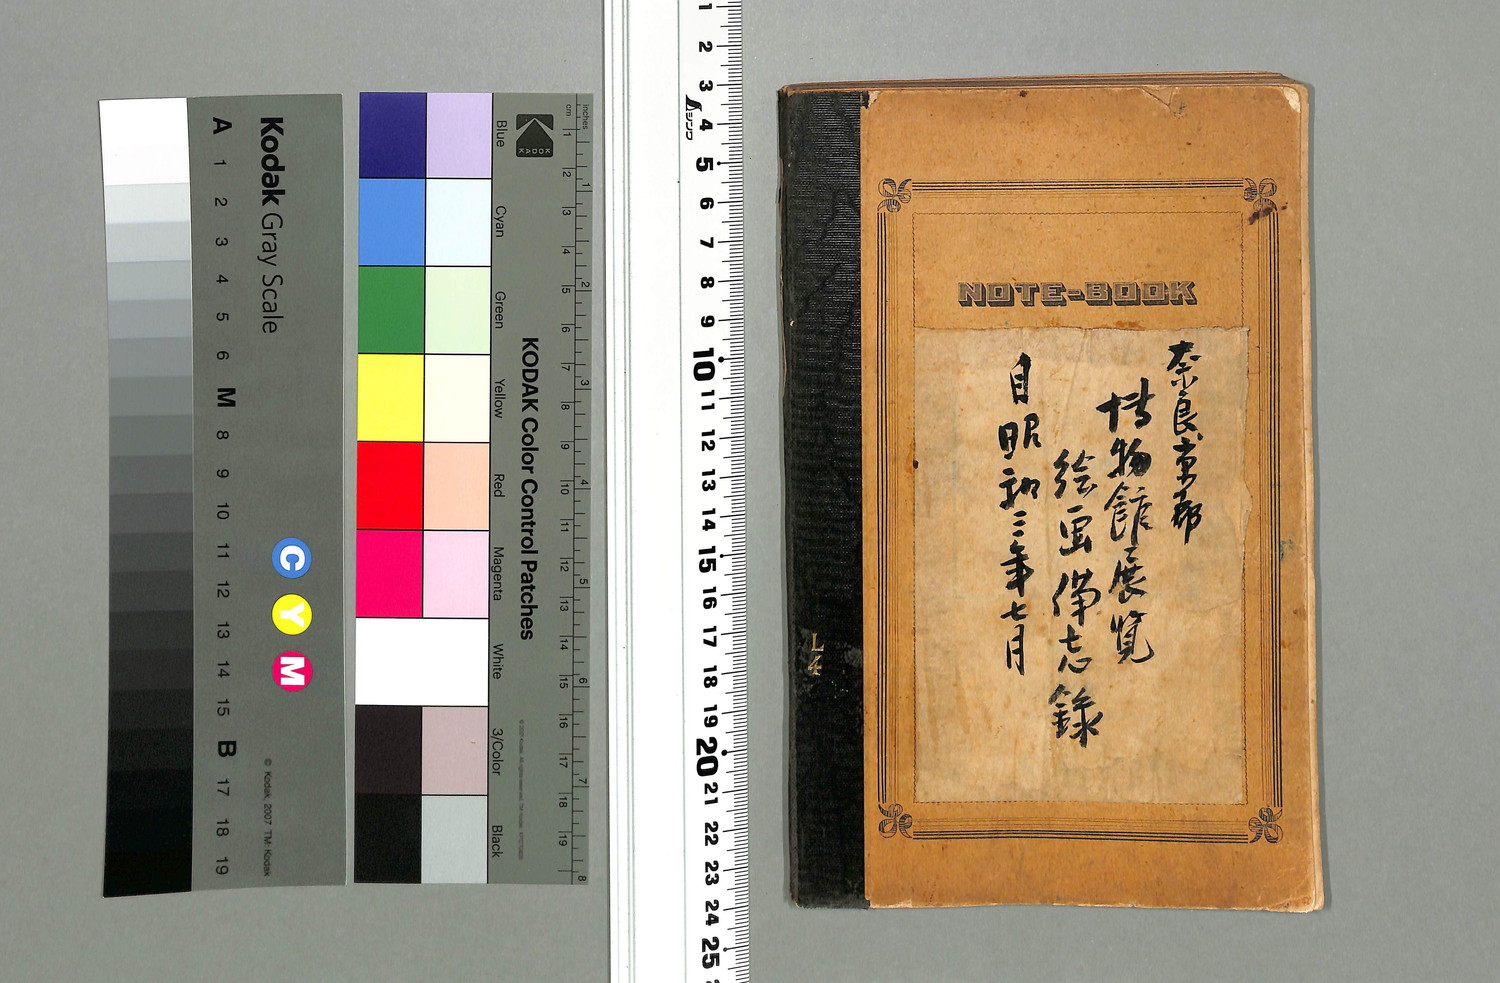 A 1 2 3 4 5 6 M 8 9 10 11 12 13 14 15 B 17 18 19
Kodak Gray Scale
C Y M
© Kodak, 2007 TM: Kodak
Blue Cyan Green Yellow Red Magenta White 3/Color Black
KODAK
KODAK Color Control Patches
cm 1 2 3 4 5 6 7 8 9 10 11 12 13 14 15 16 17 18 19
inches 1 2 3 4 5 6 7 8
シンワ
1 2 3 4 5 6 7 8 9 10 11 12 13 14 15 16 17 18 19 20 21 22 23 24 25
L
4
NOTE-BOOK
奈良京都
博物館展覧
絵画備忘録
自昭和三年七月